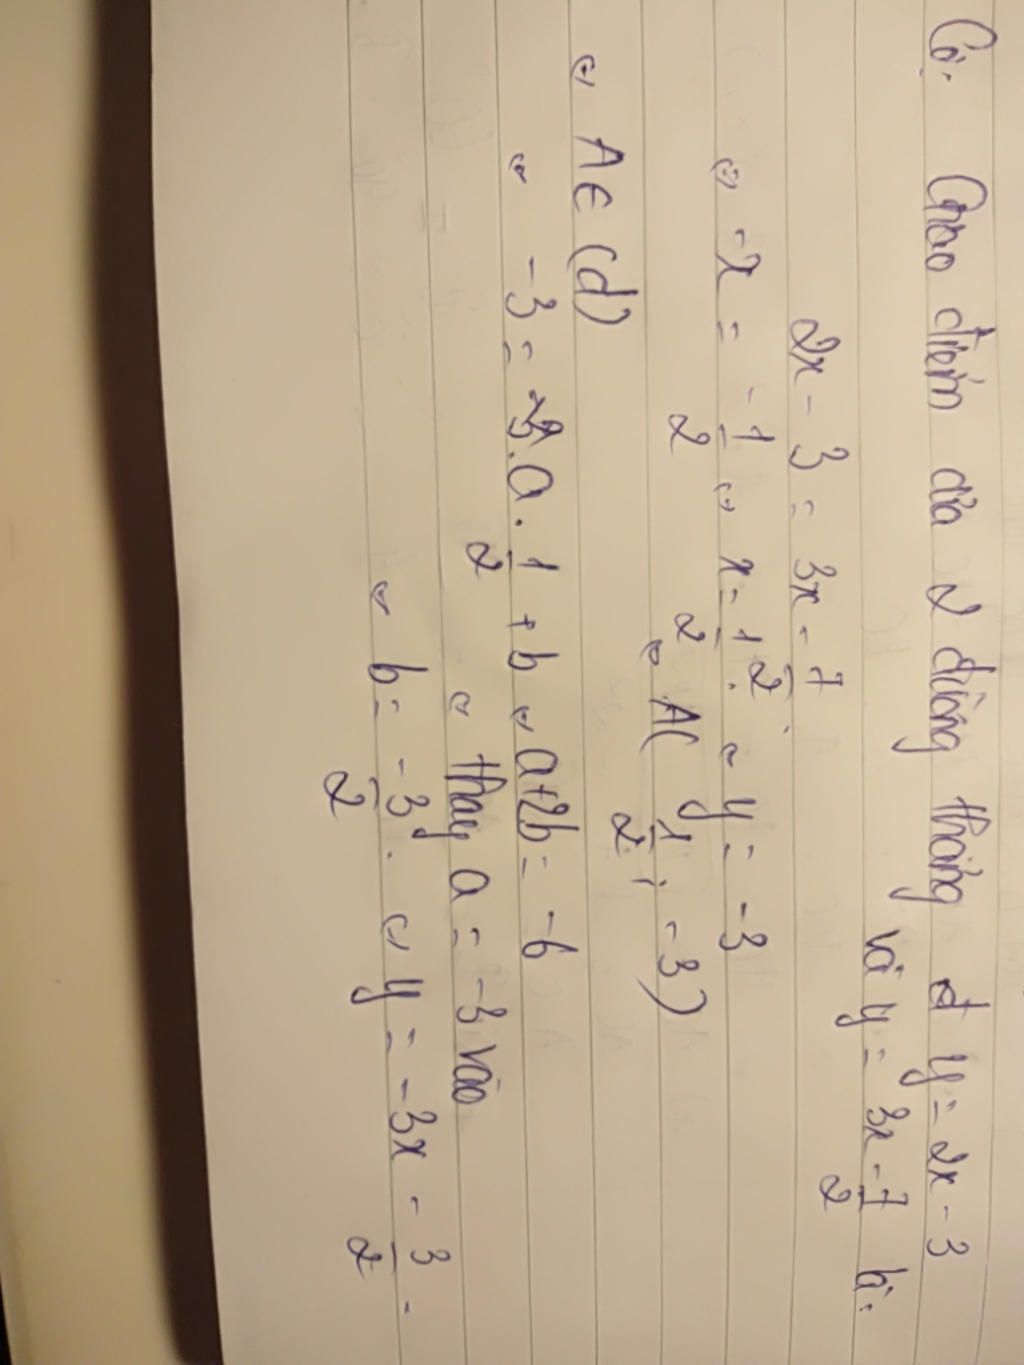 Có: Giao điểm của 2 đường thẳng d y = 2x - 3
và y = 3x - 7/2 là:
2x - 3 = 3x - 7/2.
⇔ -x = -1/2 ⇔ x = 1/2. ⇒ y = -3
⇒ A( 1/2 ; -3)
⇒ A ∈ (d)
⇒ -3 = a . 1/2 + b ⇔ a + 2b = -6
⇒ thay a = -3 vào
⇒ b = -3/2. ⇒ y = -3x - 3/2.